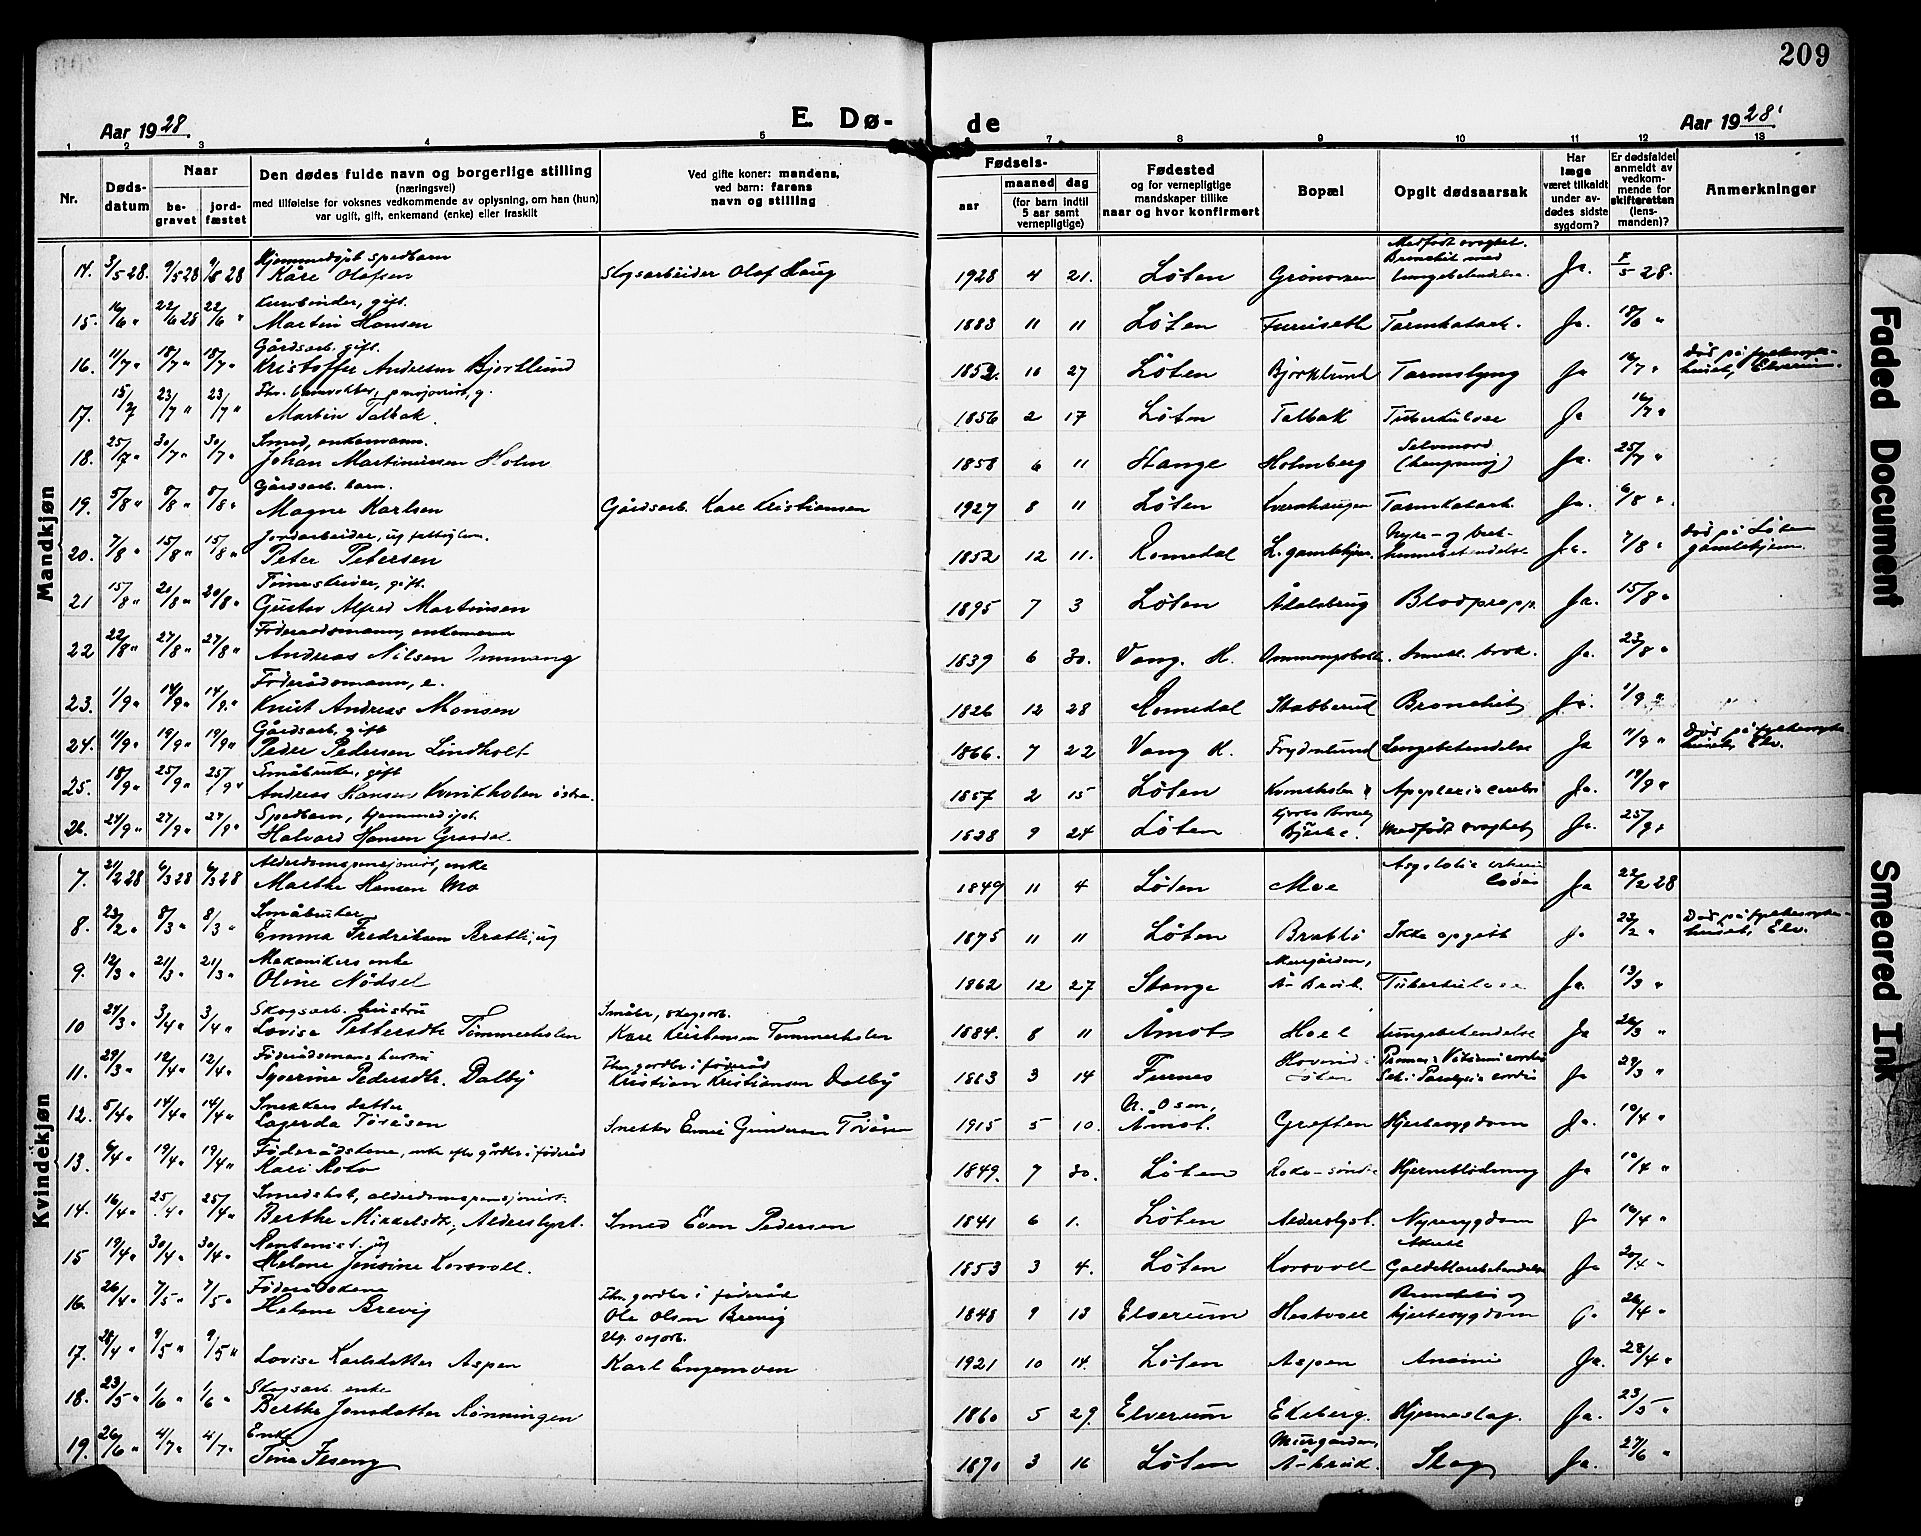 209
Aar 1928.
E. Dø- de
Aar 1928.
1 2 3 4 5 7 8 9 10 11 12 13
Nr.
Døds-datum
Naar
be-gravet
jord-fæstet
Den dødes fulde navn og borgerlige stilling
(næringsvei)
med tilføielse for voksnes vedkommende av oplysning, om han (hun)
var ugift, gift, enkemand (enke) eller fraskilt
Ved gifte koner: mandens,
ved barn: farens
navn og stilling
Fødsels-
aar
maaned
dag
(for barn indtil
5 aar samt
vernepligtige)
Fødested
og for vernepligtige
mandskaper tillike
naar og hvor konfirmert
Bopæl
Opgit dødsaarsak
Har
læge
været tilkaldt
under av-
dødes sidste
sygdom?
Er dødsfaldet
anmeldt av
vedkom-
mende for
skifteretten
(lens-
manden)?
Anmerkninger
Mandkjøn
Hjemmedøpt spedbarn
14. 3/5 28. 9/5 28 9/5 28 Kåre Olafsen Skogsarbeider Olaf Haug 1928 4 21. Løten Ja. 7/5 28.
gift.
15. 16/6 " 22/6 28 22/6 " Martin Hansen 1883 11 11 Løten Furuseth Tarmkatarh. Ja. 18/6 "
Gårdsarb. gift.
16. 11/7 " 18/7 " 18/7 " Kristoffer Andersen Bjørklund 1852. 10 27 Løten Bjørklund Tarmslyng Ja 16/7 " Død på fylkessyke-
huset, Elverum.
17. 15/7 23/7 " 23/7 " Martin Talbak 1856 2 17 Løten Talbak Tuberkulose Ja 16/7 "
Smed, enkemann.
18. 25/7 " 30/7 " 30/7 " Johan Martinusen Holm 1858 6 11 Stange Holmberg Selvmord
(hengning) Ja. 25/7 "
Gårdsarb. barn.
19. 5/8 " 8/8 " 8/8 " Magne Karlsen Gårdsarb. Karl Kristiansen 1927 8 11 Løten Tarmkatarh. Ja. 6/8 "
Jordarbeider, ug fattiglem.
20. 7/8 " 15/8 " 15/8 " Peter Petersen 1852 12 11. Romedal L. gamlehjem Ja. 7/8 " Død på Løten
gamlehjem
gift.
21 15/8 " 20/8 " 20/8 " Gustav Alfred Martinsen 1895 7 3 Løten Ådalsbrug Blodpropp. Ja. 15/8 "
Føderaadsmann, enkemann
22 22/8 " 27/8 " 27/8 " Andreas Nilsen Immang 1839 6 30. Vang. H. brok. Ja. 23/8 "
Føderådsmann, e.
23. 1/9 " 14/9 " 14/9 " Knut Andreas Monsen 1826 12 28 Romedal Stabberud Bronchit Ja. 1/9 "
Gårdsarb. gift
24. 11/9 " 19/9 " 19/9 " Peder Pedersen Lindholt 1866. 7 22 Vang H. Frydenlund Lungebetendelse Ja 11/9 " Død på fylkessyke-
huset, Elv.
Småbruker, gift
25. 18/9 " 25/9 " 25/9 " Andreas Hansen Kvikholen østre. 1857 2 15 Løten Apoplexia cerebri Ja. 19/9 "
Spedbarn, hjemmedøpt.
26. 24/9 " 27/9 " 27/9 " Halvard Hansen 1828 9 24 Løten Bjørke. Medfødt svaghet Ja. 25/9 "
Kvindekjøn
Alderdomspensjonist, enke
7. 21/2 28 6/3 28 6/3 28 Marthe Hansen Mo 1849 11 4 Løten Moe Ja 22/2 28
Småbruker
8. 23/2 " 8/3 " 8/3 " Emma Fredriksen Bratli, ug 1875 11 11 Løten Bratli Ikke opgitt Ja 23/2 " Død på fylkessyke-
huset, Elv.
Mekanikers enke
9. 12/3 " 21/3 " 21/3 " Oline Nødsel 1862 12 27 Stange Murgården,
Å-bruk. Tuberkulose Ja. 13/3 "
Skogsarb. hustru Småbr., skogsarb.
10 24/3 " 3/4 " 3/4 " Lovise Pettersdtr Tømmerholen Karl Kristensen Tømmerholen 1884. 8 11 Åmot Hoel Lungebetendelse Ja 26/3 "
Føderådsmans hustru Fhv. gårdbr i føderåd
11. 29/3 " 12/4 " 12/4 " Syverine Pedersdtr. Dalby Kristian Kristiansen Dalby 1863 3 14 Furnes Løten Ja 29/3 "
Snekkers datter
12. 5/4 " 14/4 " 14/4 " Lagerda Toråsen Snekker Gundersen Toråsen 1915 5 10. N. Osen,
Åmot. Greften Hjertesygdom Ja. 10/4 "
enke efter gårdbr i føderåd
13. 6/4 " 19/4 " 19/4 " Kari 1849. 7 30. Løten Hjerneblødning Ja 10/4 "
alderdomspensjonist.
14. 16/4 " 25/4 " 25/4 " Berthe Mikkelsdtr, Alderslyst. Smed Even Pedersen 1841 6 1. Løten Alderslyst. Nyresygdom Ja 16/4 "
Rentenist. ug
15 19/4 " 30/4 " 30/4 " Helene Jensine Korsvoll. 1853 3 4. Løten Korsvoll Akutt
Galdeblærebetendelse Ja 20/4 "
Fhv. gårdbr i føderåd
16. 26/4 " 7/5 " 7/5 " Helene Brevig Ole Olsen Brevig 1848 9 13 Elverum Bronchitis og
hjertesygdom Ja 26/4 "
17. 28/4 " 9/5 " 9/5 " Lovise Karlsdatter Aspen Karl Engemoen 1921 10 14. Løten Aspen Anæmi Ja. 28/4 "
Skogsarb. enke
18. 23/5 " 1/6 " 1/6 " Berthe Jensdatter Rønningen 1860 5 29 Elverum Ekeberg. Hjerneslag. Ja. 23/5 "
Enke
19. 26/6 " 4/7 " 4/7 " Tine Fjeseng 1870 3 16 Løten Murgården,
Å-bruk. Slag Ja. 27/6 "
Faded Document
Smeared Ink